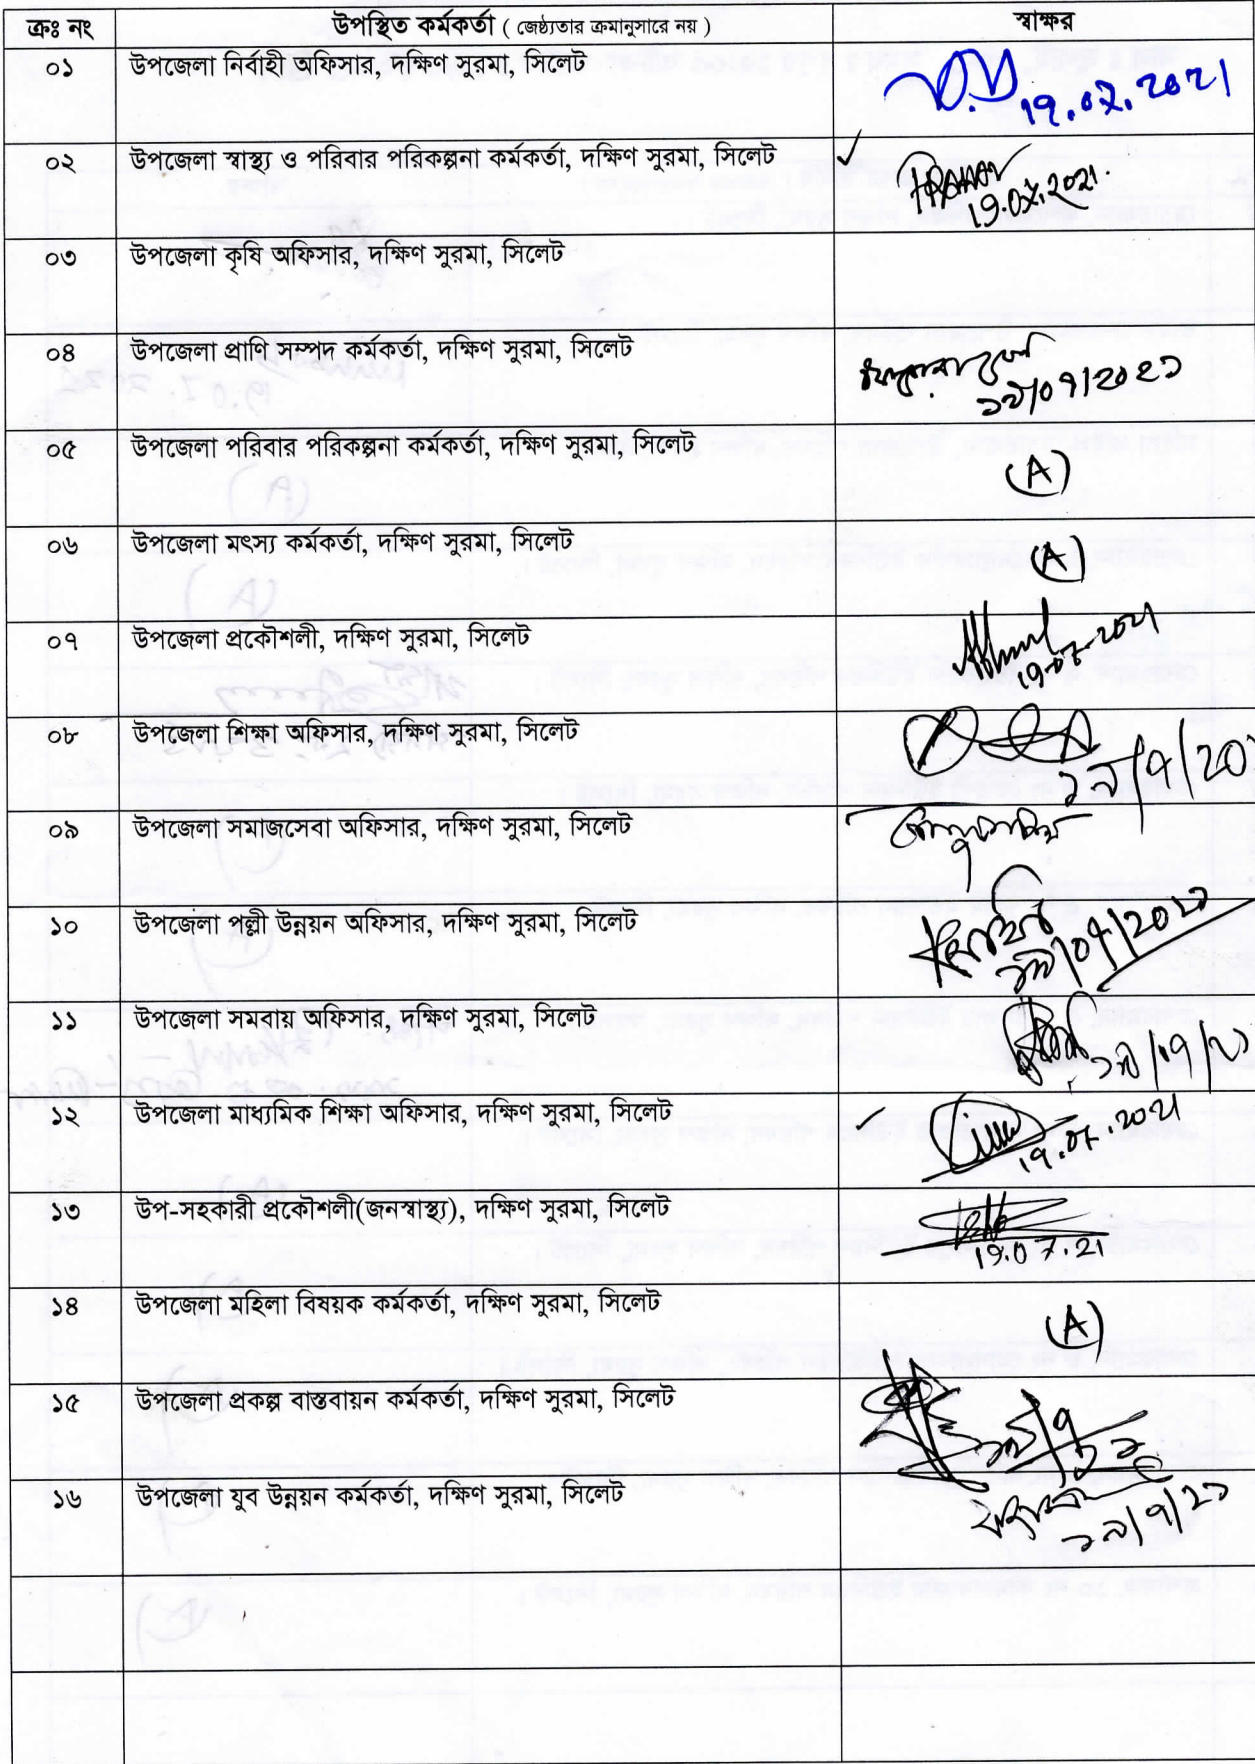 ক্রঃ নং উপস্থিত কর্মকর্তা ( জেষ্ঠ্যতার ক্রমানুসারে নয় ) স্বাক্ষর
০১ উপজেলা নির্বাহী অফিসার, দক্ষিণ সুরমা, সিলেট
19.07.2021
০২ উপজেলা স্বাস্থ্য ও পরিবার পরিকল্পনা কর্মকর্তা, দক্ষিণ সুরমা, সিলেট
19.07.2021.
০৩ উপজেলা কৃষি অফিসার, দক্ষিণ সুরমা, সিলেট
০৪ উপজেলা প্রাণি সম্পদ কর্মকর্তা, দক্ষিণ সুরমা, সিলেট
১৯/০৭/২০২১
০৫ উপজেলা পরিবার পরিকল্পনা কর্মকর্তা, দক্ষিণ সুরমা, সিলেট
(A)
০৬ উপজেলা মৎস্য কর্মকর্তা, দক্ষিণ সুরমা, সিলেট
(A)
০৭ উপজেলা প্রকৌশলী, দক্ষিণ সুরমা, সিলেট
19-07-2021
০৮ উপজেলা শিক্ষা অফিসার, দক্ষিণ সুরমা, সিলেট
১৯/৭/২০
০৯ উপজেলা সমাজসেবা অফিসার, দক্ষিণ সুরমা, সিলেট
১০ উপজেলা পল্লী উন্নয়ন অফিসার, দক্ষিণ সুরমা, সিলেট
১৯/০৭/২০২১
১১ উপজেলা সমবায় অফিসার, দক্ষিণ সুরমা, সিলেট
১৯/৭/২১
১২ উপজেলা মাধ্যমিক শিক্ষা অফিসার, দক্ষিণ সুরমা, সিলেট
19.07.2021
১৩ উপ-সহকারী প্রকৌশলী(জনস্বাস্থ্য), দক্ষিণ সুরমা, সিলেট
19.07.21
১৪ উপজেলা মহিলা বিষয়ক কর্মকর্তা, দক্ষিণ সুরমা, সিলেট
(A)
১৫ উপজেলা প্রকল্প বাস্তবায়ন কর্মকর্তা, দক্ষিণ সুরমা, সিলেট
১৯/৭
২১
১৬ উপজেলা যুব উন্নয়ন কর্মকর্তা, দক্ষিণ সুরমা, সিলেট
১৯/৭/২১